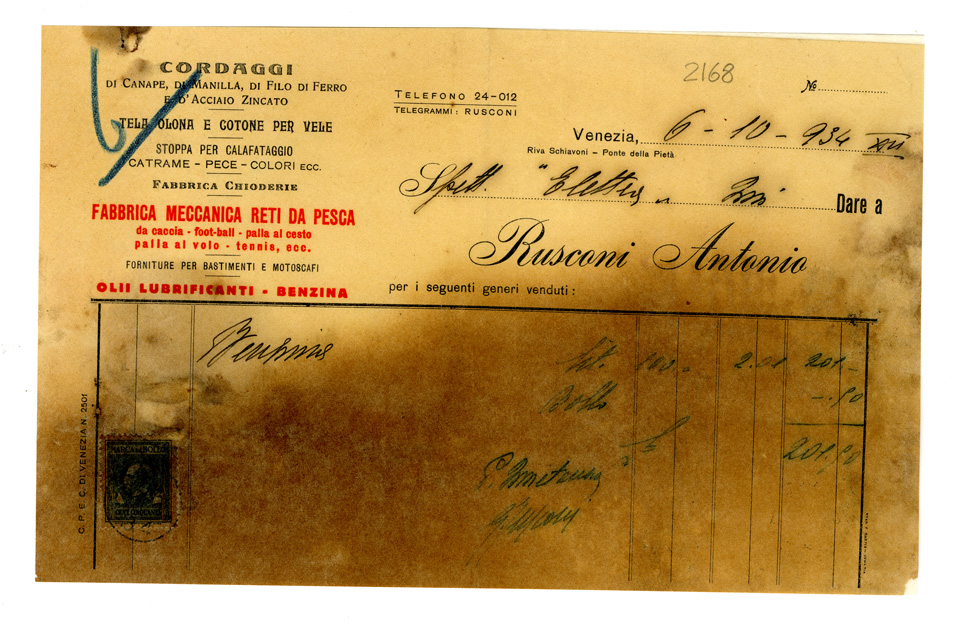 CORDAGGI
DI CANAPE, DI MANILLA, DI FILO DI FERRO
E D'ACCIAIO ZINCATO
TELA OLONA E COTONE PER VELE
STOPPA PER CALAFATAGGIO
CATRAME - PECE - COLORI ECC.
FABBRICA CHIODERIE
FABBRICA MECCANICA RETI DA PESCA
da caccia - foot-ball - palla al cesto
palla al volo - tennis, ecc.
FORNITURE PER BASTIMENTI E MOTOSCAFI
OLII LUBRIFICANTI - BENZINA
TELEFONO 24-012
TELEGRAMMI: RUSCONI
2168
No
Venezia, 6 - 10 - 934 XII
Riva Schiavoni - Ponte della Pietà
Spett. "Elettra" Dare a
Rusconi Antonio
per i seguenti generi venduti:
Benzina Lit. 100 - 2.01 201 -
Bollo -.50
201,50
C. P. E. C. DI VENEZIA N. 2501
MARCA DA BOLLO
CENT. CINQUANTA